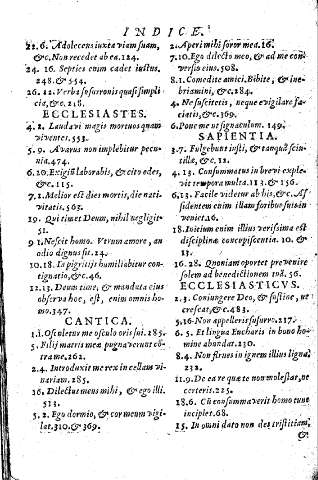 INDICE.
22.6. Adolescens iuxta viam suam,
&c. Non recedet ab ea. 124.
24. 16. Septies enim cadet iustus.
248. & 354.
26. 22. Verba susurronis quasi simpli
cia, &c. 218.
ECCLESIASTES.
4. 2. Laudavi magis mortuos quam
viventes. 553.
5. 9. Avarus non implebitur pecu-
nia. 474.
6. 10. laborabis, & cito edes,
&c. 115.
7. 2. Melior est dies mortis, die nati-
vitatis. 563.
19. Qui timet Deum, nihil negligit.
51.
9 1. Nescit homo. Vtrum amore, an
odio dignus sit. 24.
10. 18. In pigritijs humiliabitur con-
tignatio, &c. 46.
12. 13. Deum time, & mandata eius
observa hoc, est, enim omnis ho-
mo. 347.
CANTICA.
1. 1. Osculetur me osculo oris sui. 285.
5. Filij matris meæ pugnaverunt cõ-
tra me. 262.
2. 4. Introduxit me rex in cellam vi-
nariam. 285.
16. Dilectus meus mihi, & ego illi.
513.
5. 2. Ego dormio, & cor meum vigi-
lat. 310. & 369.
2. Aperi mihi soror mea. 16.
7. 10. Ego dilecto meo, & ad me con-
versio eius. 508.
8. 1. Comedite amici, Bibite, & ine-
briamini, &c. 284.
4. Ne suscitetis, neque evigilare fa-
ciatis, &c. 369.
6. Pone me ut signaculum. 149.
SAPIENTIA.
3. 7. Fulgebunt iusti, & tanquã scin-
tillæ, &c. 12.
4. 13. Consummatus in brevi exple-
vit tempora multa. 113. & 156.
6. 13. Facile videtur ab his, &c. As
sidentem enim illam foribus suis in
veniet. 16.
18. Initium enim illius verissima est
disciplinæ concupiscentia. 10. &
13.
16. 28. Quoniam oportet prevenire
solem ad benedictionem tuã. 56.
ECCLESIASTICVS.
2. 3. Coniungere Deo, & sustine, ut
crescat, &c. 483.
5. 16. Non appelleris susurro. 217.
6. 5. Et lingua Eucharis in bono ho-
mine abundat. 230.
8. 4. Non strues in ignem illius ligna
232.
11. 9. De ea re quæ te non molestat, ne
certeris. 225.
18. 6. Cũ consummaverit homo tunc
incipiet. 68.
15. In omni dato non des tristitiam,
&